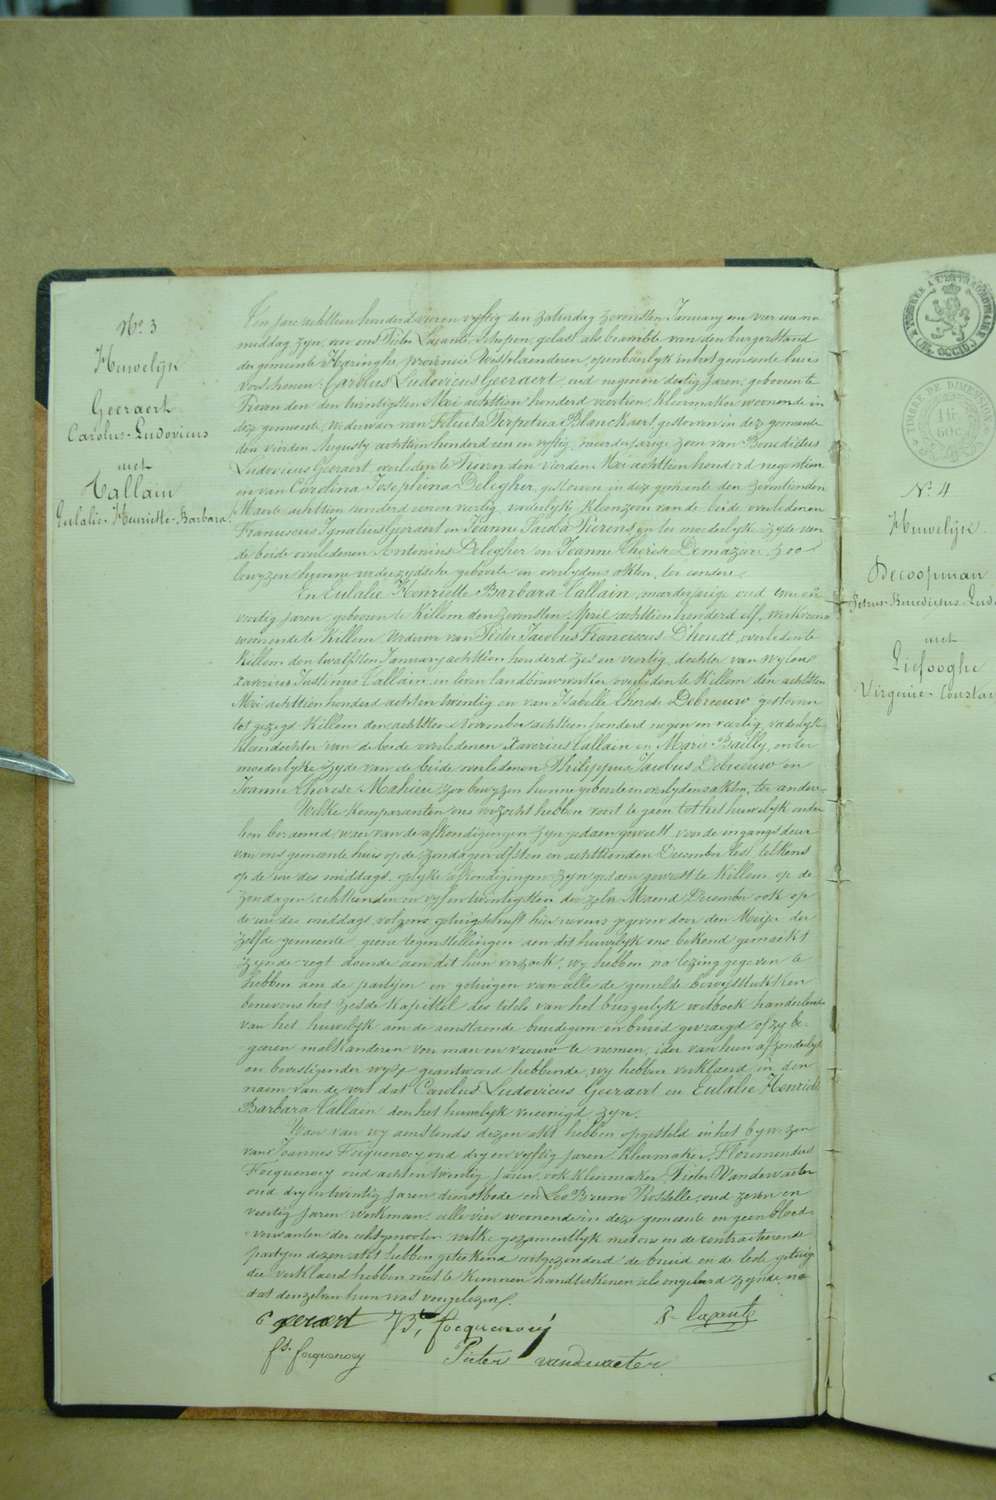 No. 3
Huwelijk
Geeraert
Carolus-Ludovicus
met
Callain
Eulalie-Henriette-Barbara
Ten jare achttien honderd vieren vyftig den Zaturdag zevensten January om vier ure na
middag zyn, voor ons Pieter Schepen, gelast als beambte van den burgerstand
der gemeente Haringhe provincie Westvlaenderen, openbaerlyk in het gemeente huis
verschenen: Carolus Ludovicus Geeraert, oud negen en dertig jaren, geboren te
den twintigsten Mei achttien honderd veertien, kleermaker woonende in
deze gemeente, weduwaer van Felicita Perpetua Blanckaert, gestorven in deze gemeente
den vierden Augusty achttien honderd een en vyftig, meerderjarige zoon van Benedictus
Ludovicus Geeraert, overleden te den vierden Mei achttien honderd negentien
en van Carolina Josephina Deleghher, gestorven in deze gemeente den zeventienden
Maerte achttien honderd veertig, vaderlyk kleinzoon van de beide overledenen
Franciscus Ignatius Geeraert en Joanne en ter moederlyke zyde van
de beide overledenen Antonius Deleghher en Joanne Therese Demazon, zoo
bewyzen hunne wederzydsche geboorte en overlydens akten, ter eendere
En Eulalie Henriette Barbara Callain, meerderjarige oud twee en
veertig jaren, geboren te Killem den zevensten April achttien honderd elf, werkvrouw
woonende te Killem, weduwe van Pieter Jacobus Franciscus Dhoudt, overleden te
Killem den twalfsten January achttien honderd zes en veertig, dochter van wylen
Xaverius Justinus Callain, in leven landbouwer overleden te Killem den achtsten
Mei achttien honderd achten twintig en van Isabelle Therese Debreeuw gestorven
tot gezegd Killem den achtsten November achttien honderd negen en veertig, vaderlyke
kleindochter van de beide overledenen Xaverius Callain en Marie Bailly, en ter
moederlyke zyde van de beide overledenen Philippus Jacobus Debreeuw en
Joanne Therese Mahieu, zoo bewyzen hunne geboorte en overlydens akten, ter andere
Welke komparanten ons verzocht hebben voort te gaen tot het huwelyk onder
hen beraemd waer van de afkondigingen zyn gedaen geweest, voor de ingangs deur
van ons gemeente huis op de zondagen elfsten en achttienden December lest, telkens
op de ure des middags, gelyke afkondigingen zyn gedaen geweest te Killem op de
zondagen achttienden en vyfentwintigsten der zelve Maend December ook op
de ure des middags, volgens getuigschrift hier nevens gegeven door den Meyer der
zelfde gemeente geene tegenstellingen aen dit huwelyk ons bekend gemaekt
zynde regt doende aen dit hun verzoek, wy hebben na lezing gegeven te
hebben aen de partyen en getuigen van alle de gemelde bewysstukken
benevens het zesde kapittel des titels van het burgerlyk wetboek handelende
van het huwelyk aen de aenstaende bruidegom en bruid gevraegd of zy be-
geeren malkanderen voor man en vrouw te nemen, ider van hun afzonderlyk
en bevestigender wyze geantwoord hebbende, wy hebben verklaerd in den
naem van de wet dat Carolus Ludovicus Geeraert en Eulalie Henriette
Barbara Callain door het huwelyk vereenigd zyn.
Waer van wy aenstonds dezen akt hebben opgesteld in het bywezen
van Joannes Focquenoey oud dry en vyftig jaren kleermaker,
Focquenoey oud achten twintig jaren, ook kleermaker, Pieter Vandewaeter
oud dry en twintig jaren, dienstbode en Leo Bruno oud zeven en
veertig jaren werkman, alle vier woonende in deze gemeente en geen bloed-
verwanten der echtgenooten welke gezamentlyk met ons en de contracteerende
partyen dezen akt hebben geteekend uitgezonderd de bruid en de leste getuige
die verklaerd hebben niet te kunnen handteekenen als ongeleerd zynde, na
dat den zelven hun was voorgelezen.
C geeraert focquenoeij P Lagauts
fs. focquenoey Pieter vandewaeter
N. 4
Huwelijk
Decoopman
Petrus-Benedictus-Ludo
met
Liefooghe
Virginie-Constan